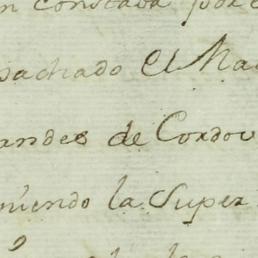 n constava por
pachado el Ma
andes de Cordov
niendo la Super